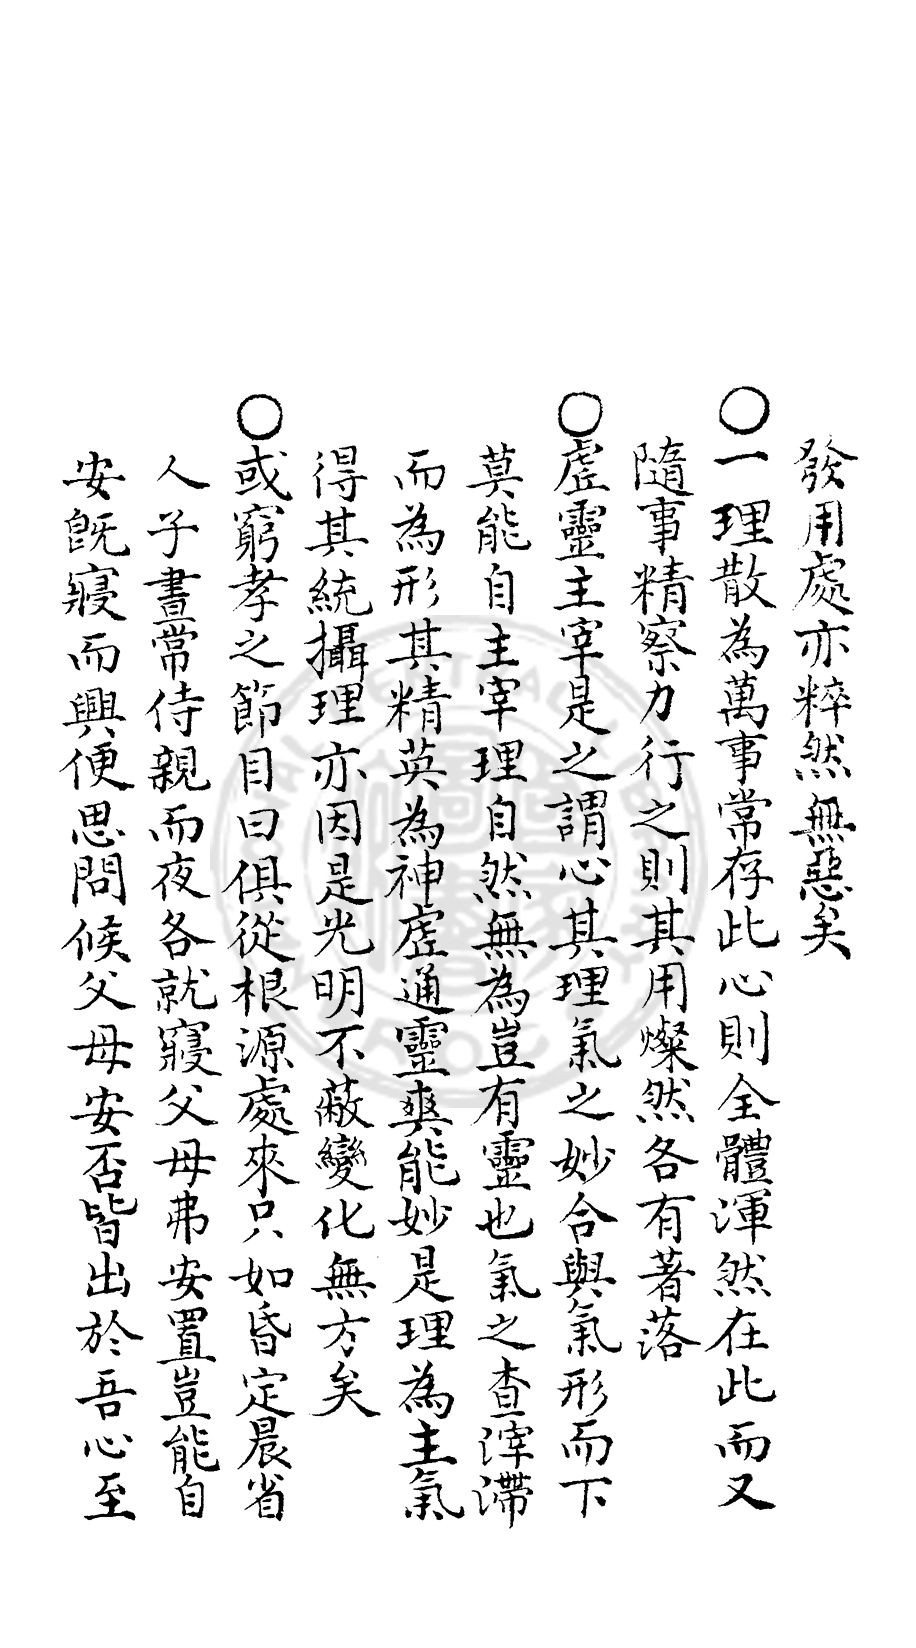 發用處亦粹然無惡矣
〇一理散為萬事常存此心則全體渾然在此而又
隨事精察力行之則其用燦然各有著落
〇虛靈主宰是之謂心其理氣之妙合與氣形而下
莫能自主宰理自然無為豈有靈也氣之查滓滯
而為形其精英為神虛通靈爽能妙是理為主氣
得其統攝理亦因是光明不蔽變化無方矣
〇或窮孝之節目曰俱從根源處來只如昏定晨省
人子晝常侍親而夜各就寢父母弗安置豈能自
安既寢而興便思問候父母安否皆出於吾心至